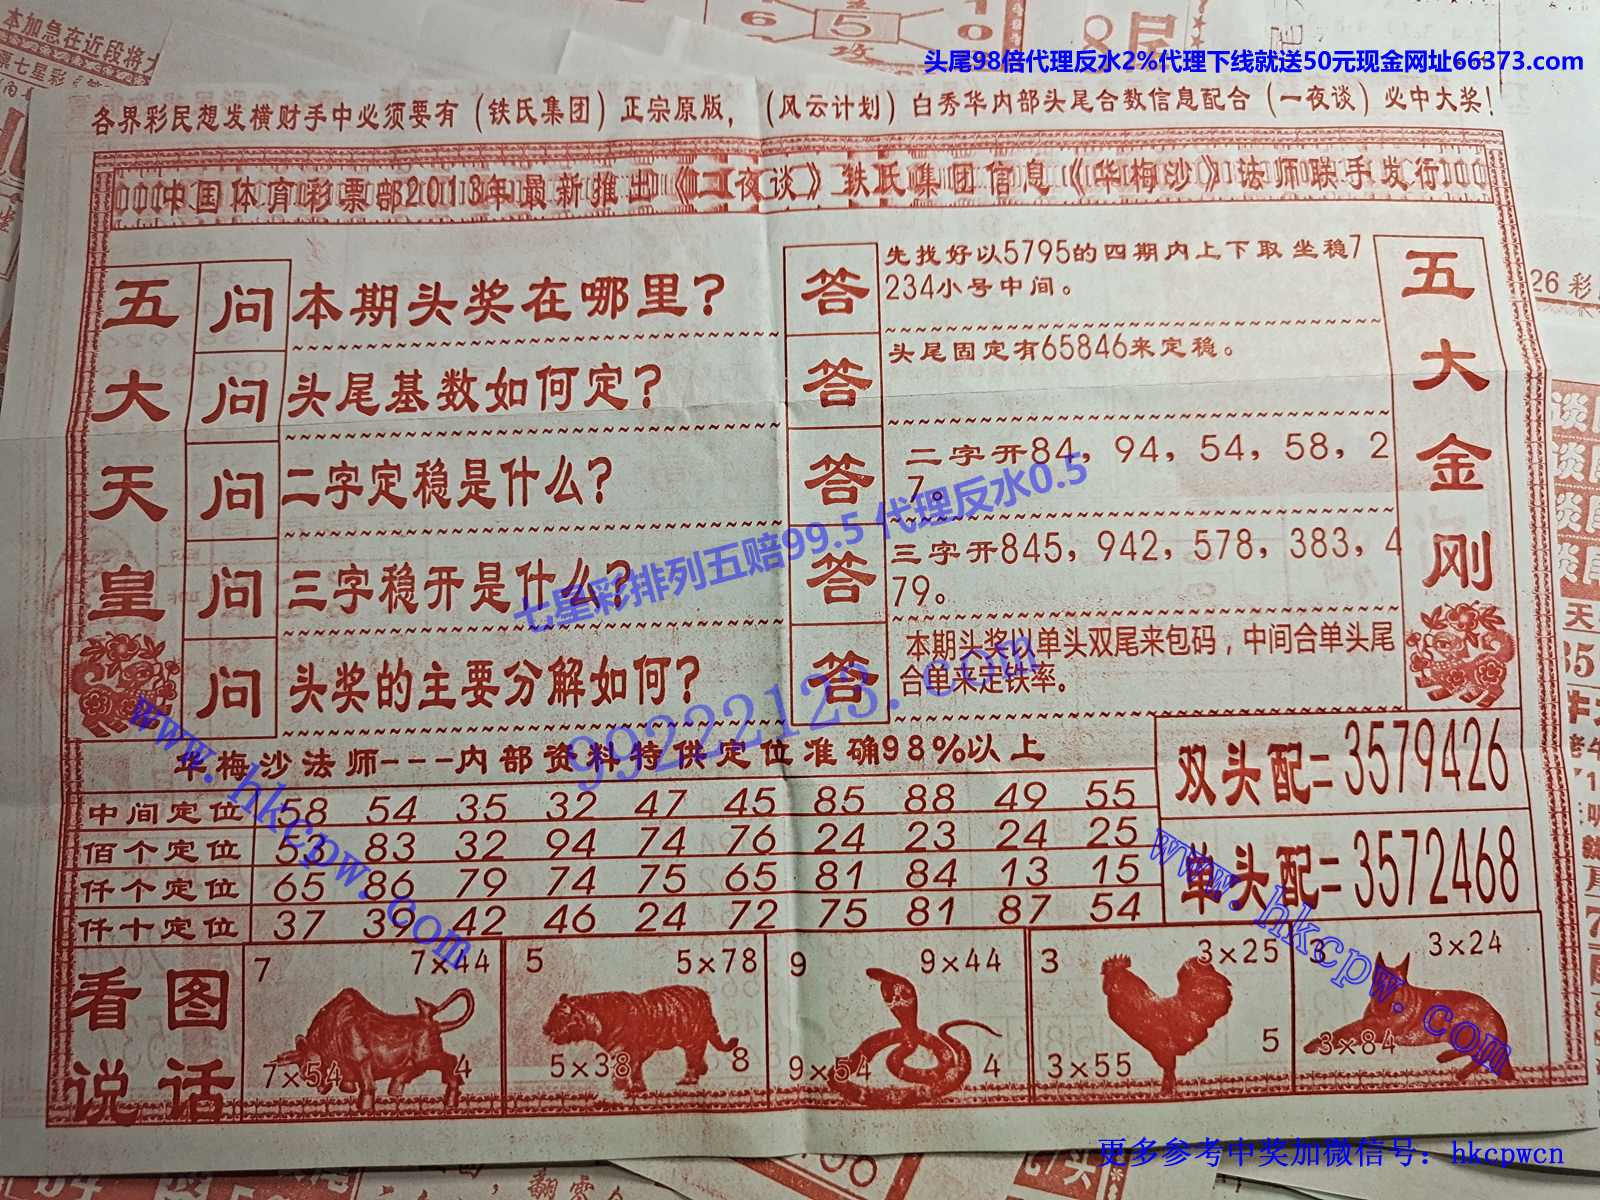 本加急在近段将
票七星彩
头尾98倍代理反水2%代理下线就送50元现金网址66373.com
各界彩民想发横财手中必须要有（铁氏集团）正宗原版，（风云计划）白秀华内部头尾合数信息配合（一夜谈）必中大奖！
中国体育彩票部2013年最新推出《一夜谈》铁氏集团信息《华梅沙》法师联手发行
五大天皇
问 本期头奖在哪里?
答 先找好以5795的四期内上下取坐稳7
234小号中间。
问 头尾基数如何定?
答 头尾固定有65846来定稳。
问 二字定稳是什么?
答 二字开84，94，54，58，2
7。
问 三字稳开是什么?
答 三字开845，942，578，383，4
79。
问 头奖的主要分解如何?
答 本期头奖以单头双尾来包码，中间合单头尾
合单来定铁率。
五大金刚
七星彩排列五赔99.5 代理反水0.5
99222123.com
www.hkcpw.com
华梅沙法师---内部资料特供定位准确98%以上
中间定位 58 54 35 32 47 45 85 88 49 55
佰个定位 53 83 32 94 74 76 24 23 24 25
仟个定位 65 86 79 74 75 65 81 84 13 15
仟十定位 37 39 42 46 24 72 75 81 87 54
双头配=3579426
单头配=3572468
www.hkcpw.com
看图
说话
7 7×44
7×54 4
5 5×78
5×38 8
9 9×44
9×54 4
3 3×25
3×55 5
3 3×24
3×84
26彩
更多参考中奖加微信号：hkcpwcn